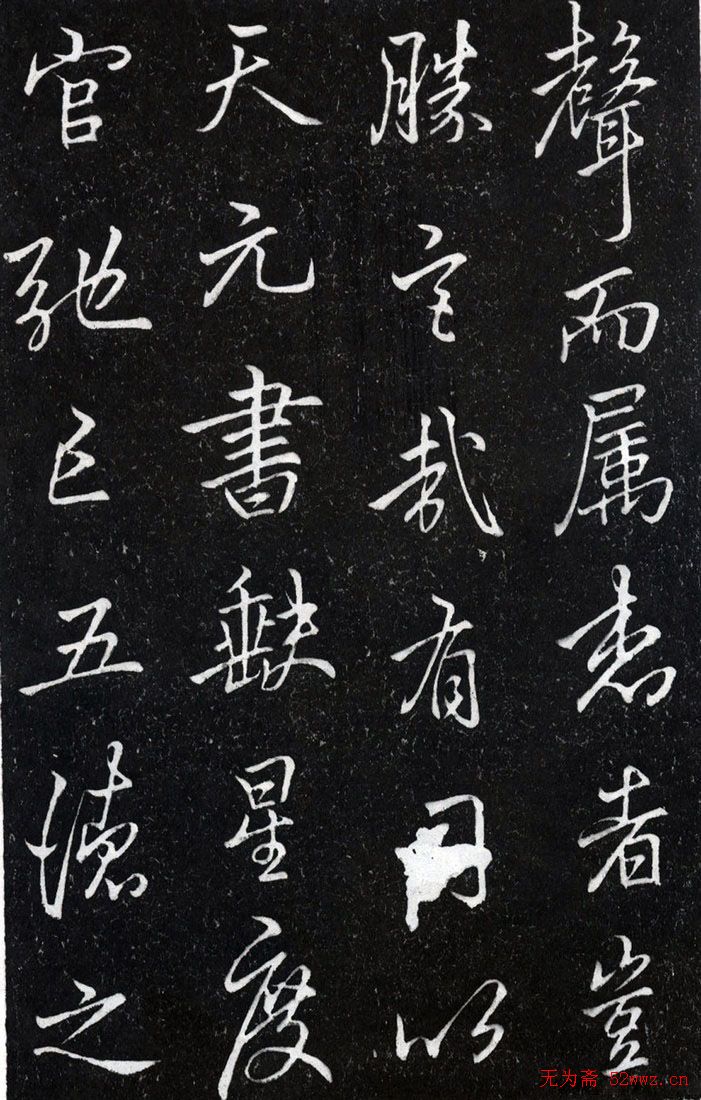 聲而属者豈
勝言哉有以
天元書缺星度
官弛五德之
无为斋 52wwz.cn